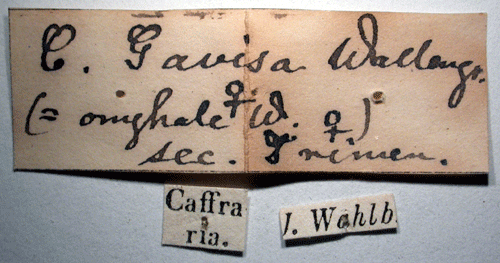 C. Gavisa Wallengr.
(= omphale ♀ W. ♀)
sec. Trimen.
Caffra
ria.
J. Wahlb.